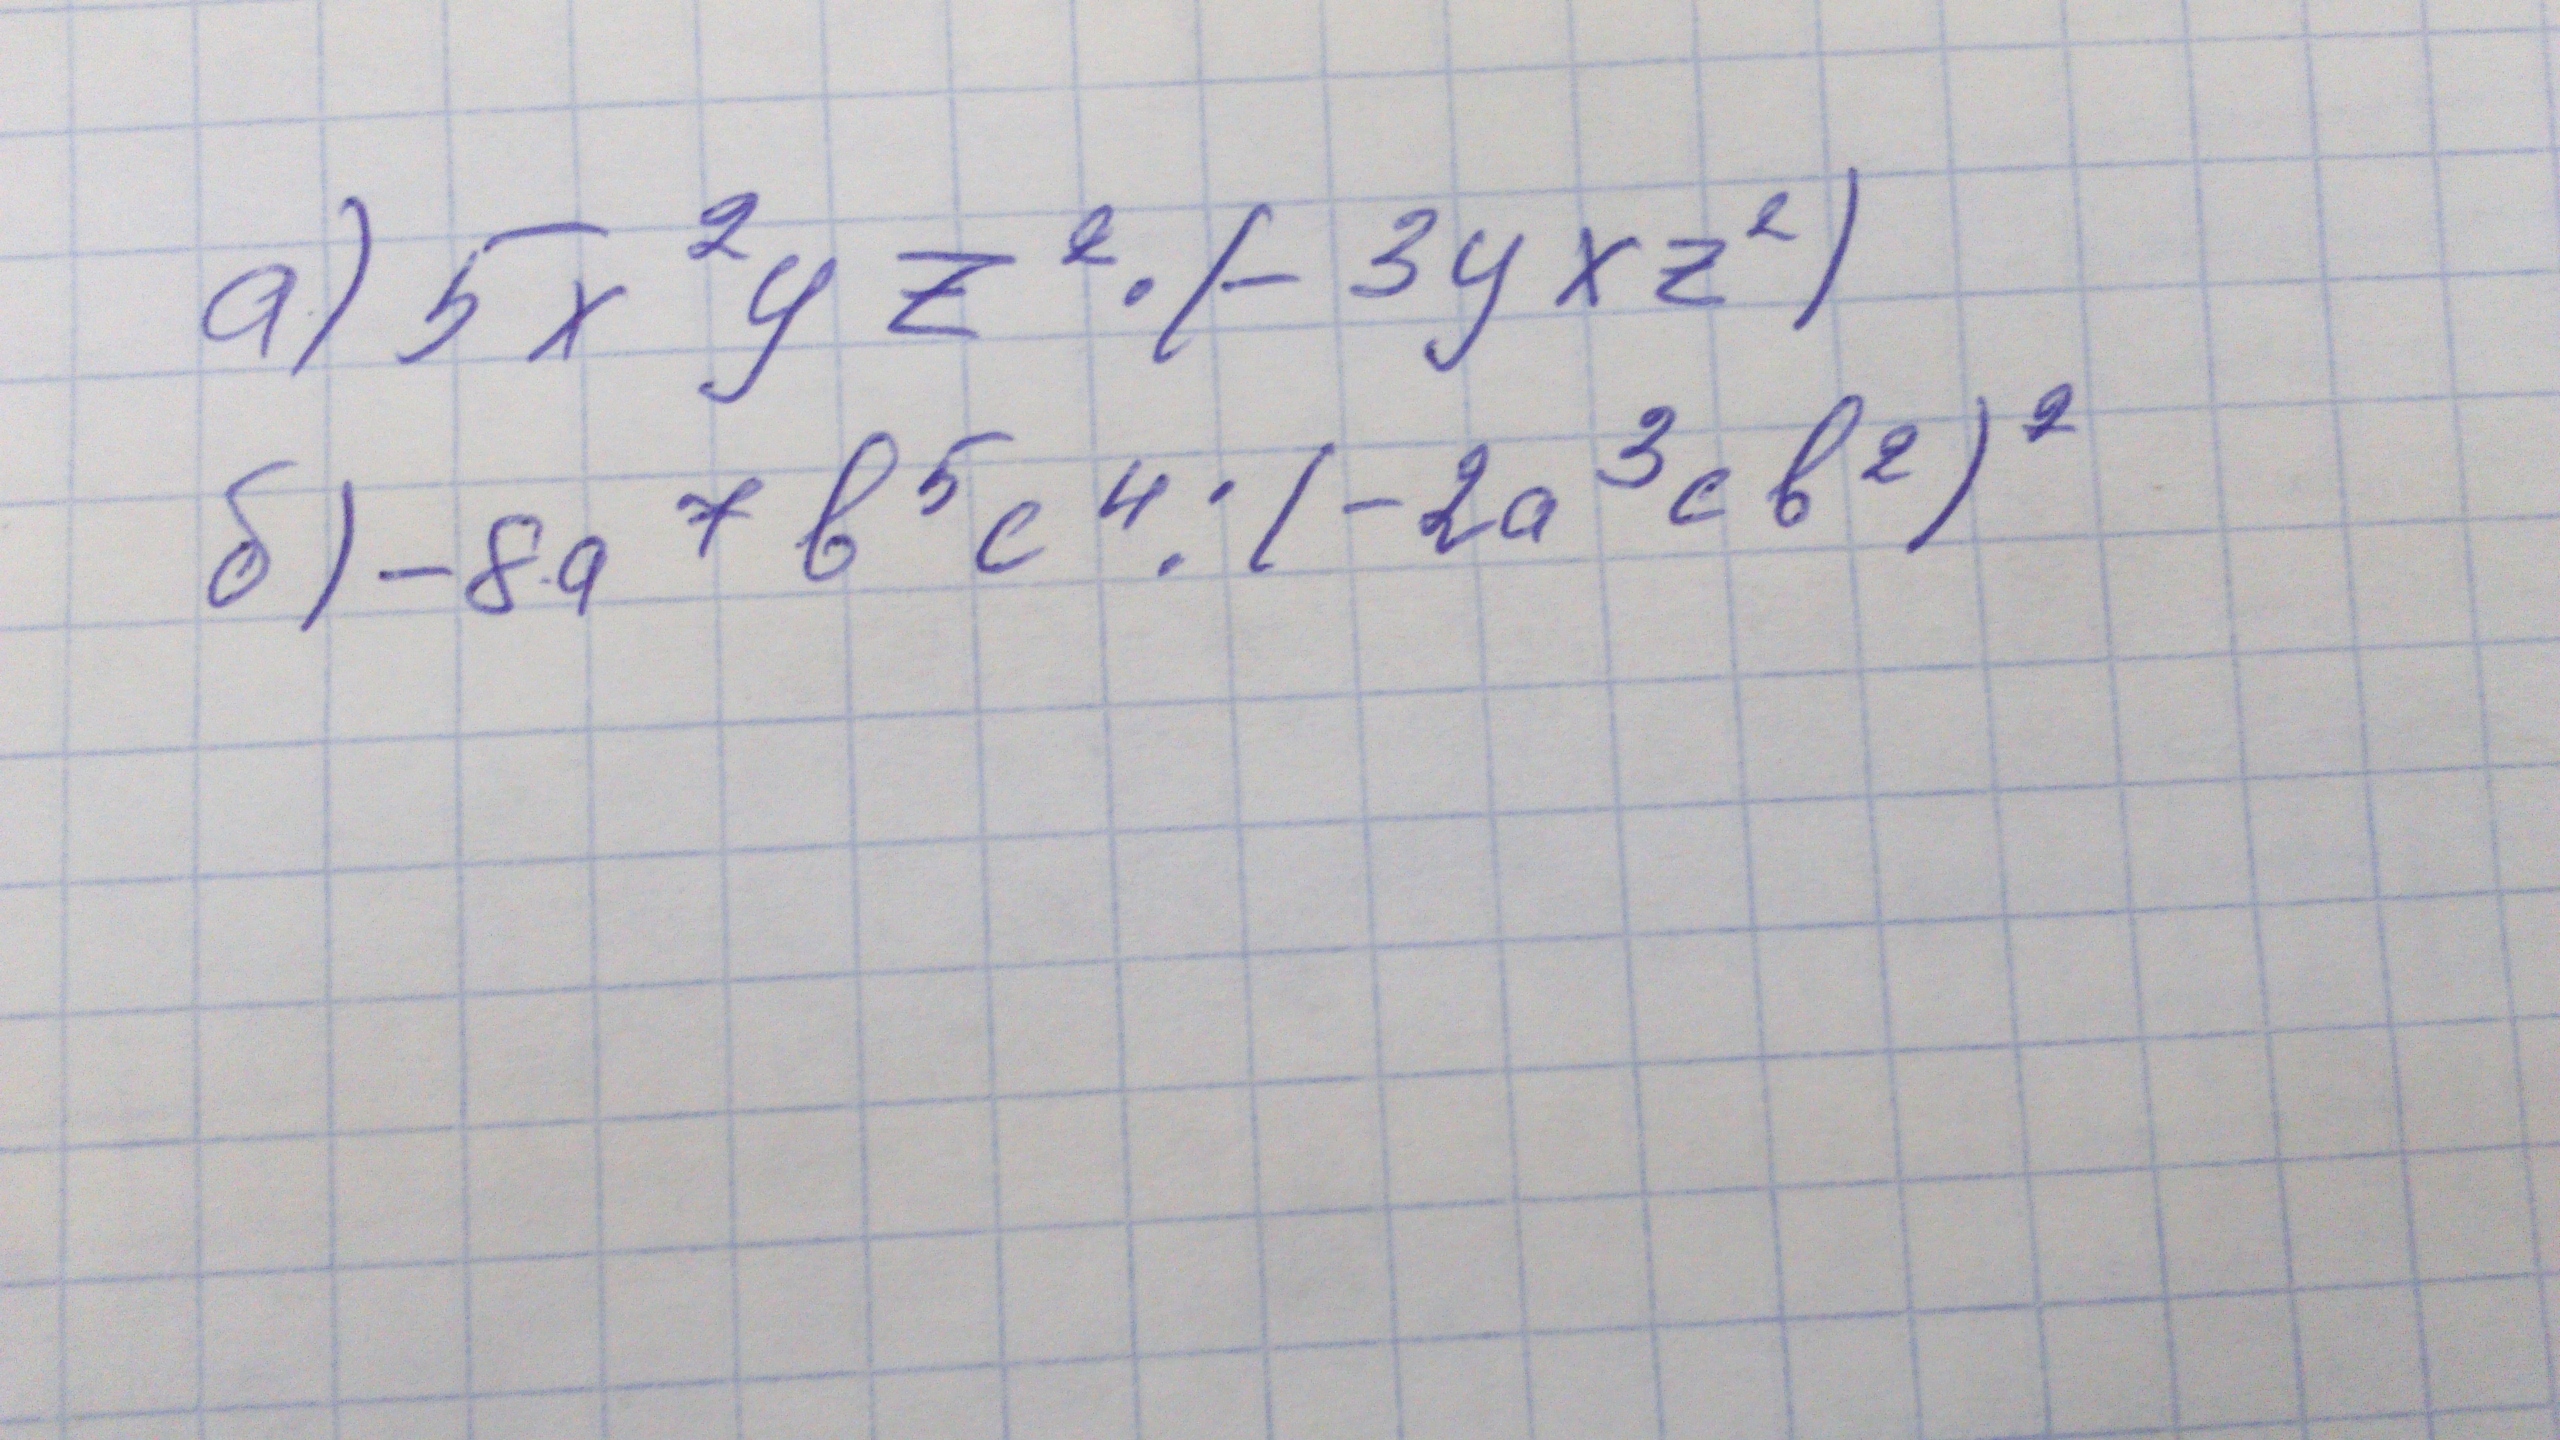 а) 5x²yz² · (-3yxz²)
б) -8a⁷b⁵c⁴ : (-2a³cb²)²